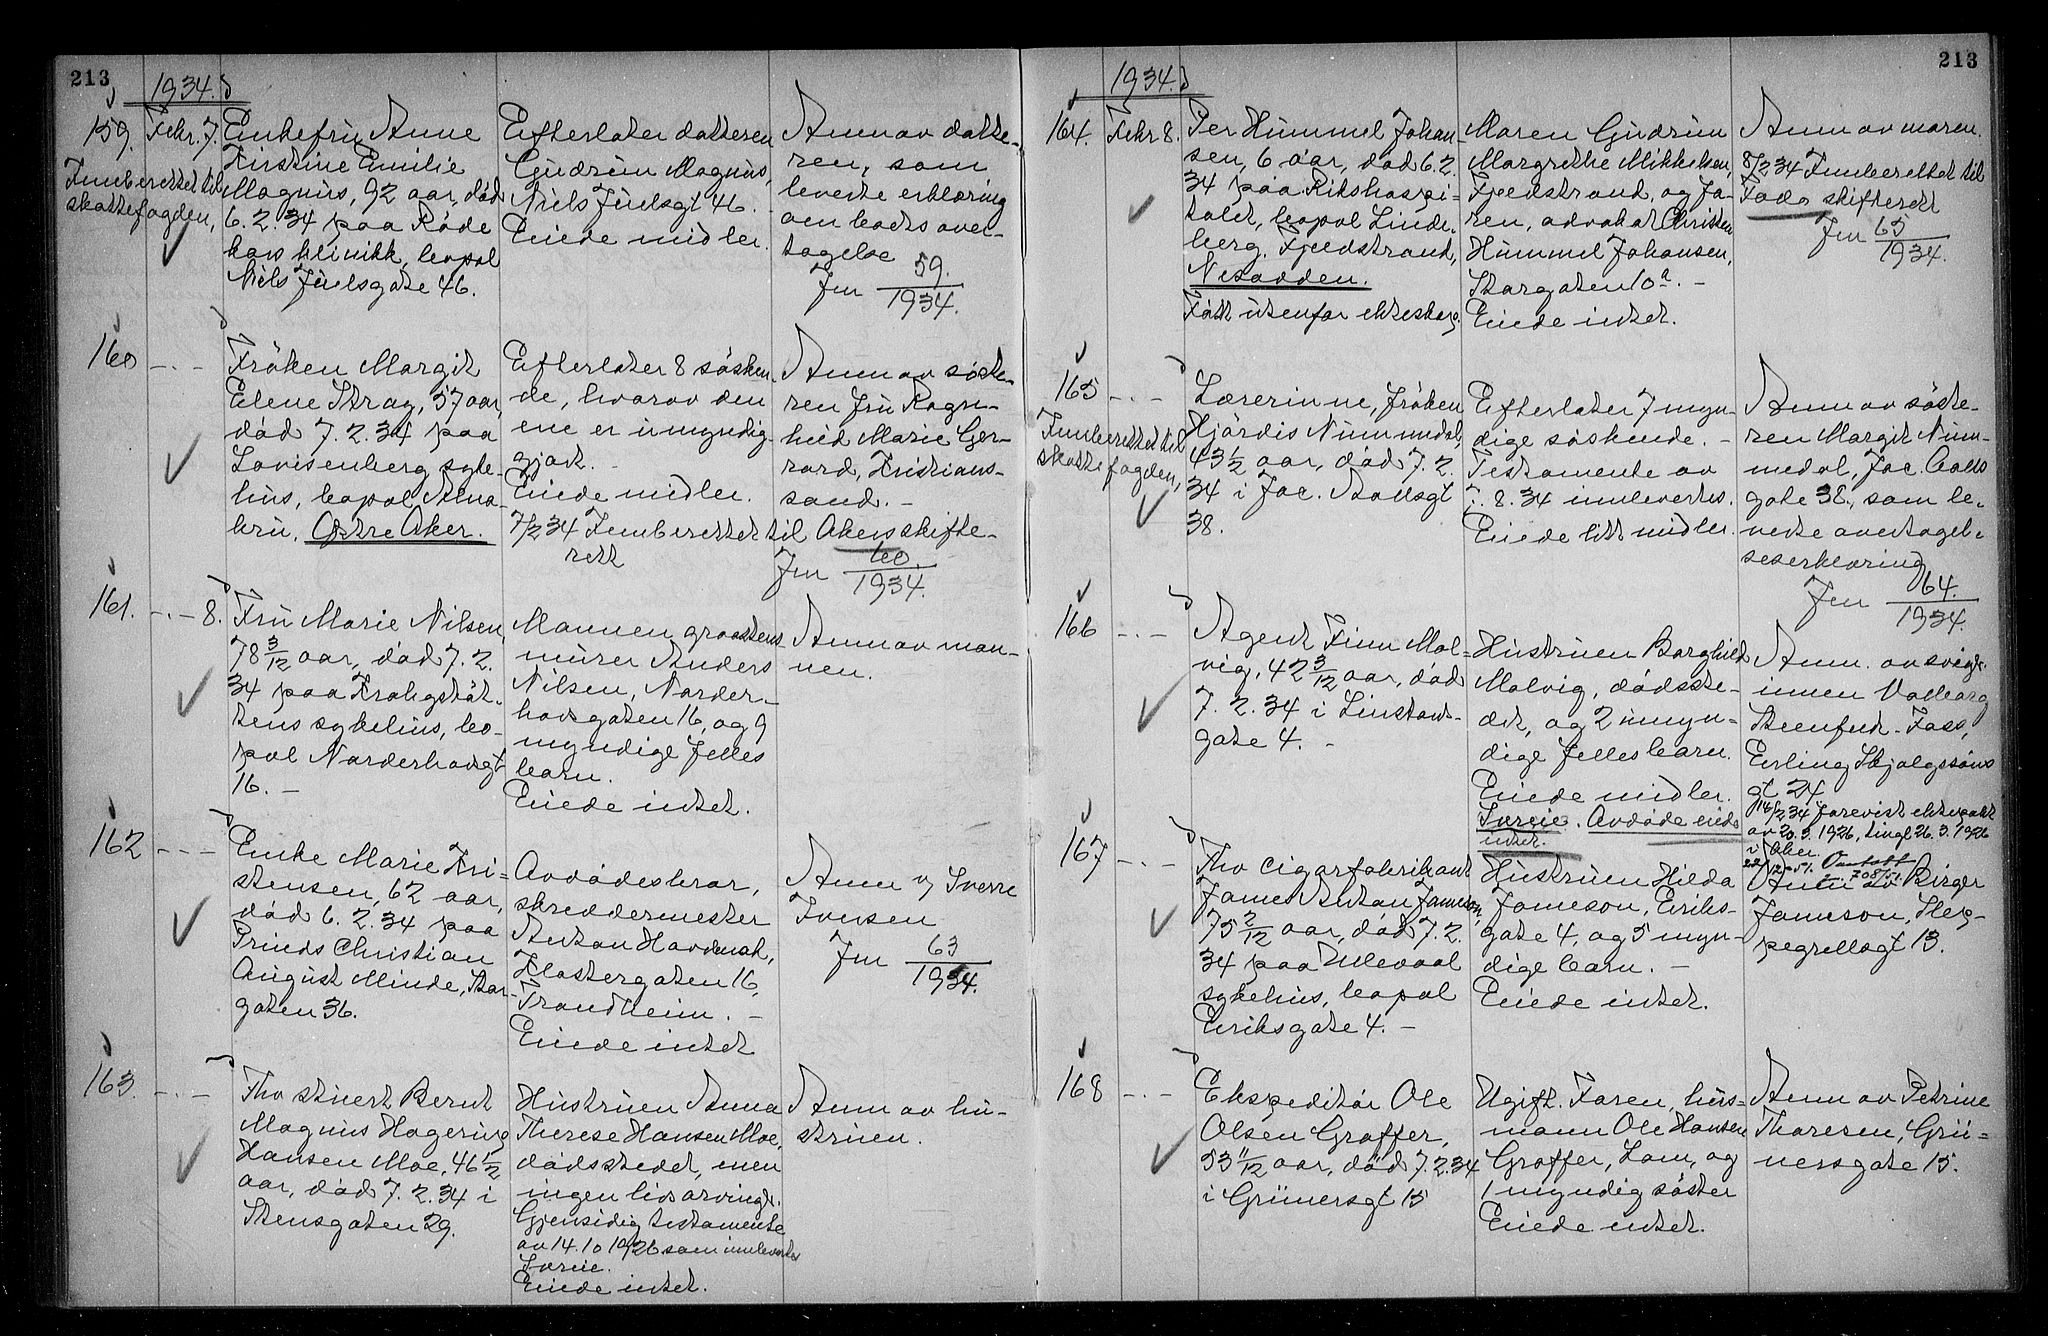 213
1934.
159. Febr. 7.
Innberettet til
skattefogden,
Enkefru Anne
Kirstine Emilie
Magnus, 92 aar, död
6. 2. 34 paa Röde
kors klinikk, bopæl
Niels Juelsgate 46.
Efterlater datteren
Gudrun Magnus,
Niels Juelsgt 46. -
Eiede midler.
Anm av datte-
ren, som
leverte erklæring
om boets over-
tagelse
Jnr 59.
1934.
160 -.-
Fröken Margit
Elene Strag, 57 aar,
död 7. 2. 34 paa
Lovisenberg syke-
hus, bopæl Alna-
bru, Östre Aker.
Efterlater 8 sösken-
de, hvorav den
ene er umyndig-
gjort. -
Eiede midler.
7/2 34 Innberettet til Akers skifte-
rett
Anm av söste-
ren fru Ragn-
hild Marie Ger-
rard, Kristians-
sand. -
Jnr 60.
1934.
161. -.- 8.
Fru Marie Nilsen,
78 3/12 aar, död 7. 2.
34 paa Krohgstöt-
tens sykehus, bo-
pæl Norderhovsgt
16. -
Mannen graastens-
murer Anders
Nilsen, Norder-
hovsgaten 16, og 9
myndige felles
barn.
Eiede intet.
Anm av man-
nen.
162 -.-
Enke Marie Kri-
stensen, 62 aar,
död 6. 2. 34 paa
Prinds Christian
August Minde, Stor-
gaten 36.
Avdödes bror,
skreddermester
Anton Havdenak,
Klostergaten 16,
Trondheim. -
Eiede intet
Anm v/ Sverre
Iversen
Jnr 63
1934.
163. -.-
Fhv stuert Bernt
Magnus Hagerup
Hansen Moe, 46 1/2
aar, död 7. 2. 34 i
Stensgaten 29.
Hustruen Anna
Therese Hansen Moe,
dödsstedet, men
ingen livsarving.
Gjensidig testamente
av 14. 10 1926 som innleverte
Særeie.
Eiede intet.
Anm av hu-
struen.
213
1934.
164. Febr 8.
Per Hummel Johan-
sen, 6 aar, död 6. 2.
34 paa Rikshospi-
talet, bopæl Linde-
berg, Fjeldstrand,
Nesodden.
Födt utenfor ekteskap.
Moren Gudrun
Margrethe Mikkelsen,
Fjeldstrand, og fa-
ren, advokat Christen
Hummel Johansen,
Storgaten 10a. -
Eiede intet.
Anm av moren.
8/2 34 Innberettet til
Follo skifterett
Jnr 65
1934.
165 -.-
Innberettet til
skattefogden,
Lærerinne, fröken
Hjördis Nummedal,
43 1/2 aar, död 7. 2.
34 i Jac. Aallsgt
38.
Efterlater 7 myn-
dige söskende. -
Testamente av
8. 34 innlevertes.
Eiede litt midler.
Anm av söste-
ren Margit Num-
medal, Jac. Aalls
gate 38, som le-
verte overtagel-
seserklæring
Jnr 64.
1934.
166 -.-
Agent Finn Mal-
vig, 42 3/12 aar, död
7. 2. 34 i Linstows-
gate 4. -
Hustruen Borghild
Malvig, dödsste-
det, og 2 umyn-
dige felles barn.
Eiede midler.
Særeie. Avdöde eiede
intet.
Anm. av svige-
innen Valborg
Steenfeldt-Foss,
Erling Skjalgssöns
gt 24
14/2 34 forevist ektepakt
av 20. 3. 1926, tingl. 26. 3. 1926
i Aker.
22/12-51.
708/51.
167 -.-
Fhv cigarfabrikant
James Anton Jameson,
75 2/12 aar, död 7. 2.
34 paa Ullevaal
sykehus, bopæl
Eriksgate 4. -
Hustruen Hilda
Jameson, Eriks-
gate 4, og 5 myn-
dige barn. -
Eiede intet.
Anm av Birger
Jameson, Shep-
pegrellsgt 13.
168 -.-
Ekspeditör Ole
Olsen Groffer,
53 11/12 aar, död 7. 2. 34
i Grünersgt 15
Ugift. Faren, hus-
mann Ole Hansen
Groffer, Lom, og
1 myndig söster
Eiede intet.
Anm av Petrine
Thoresen, Grü-
nersgate 15.